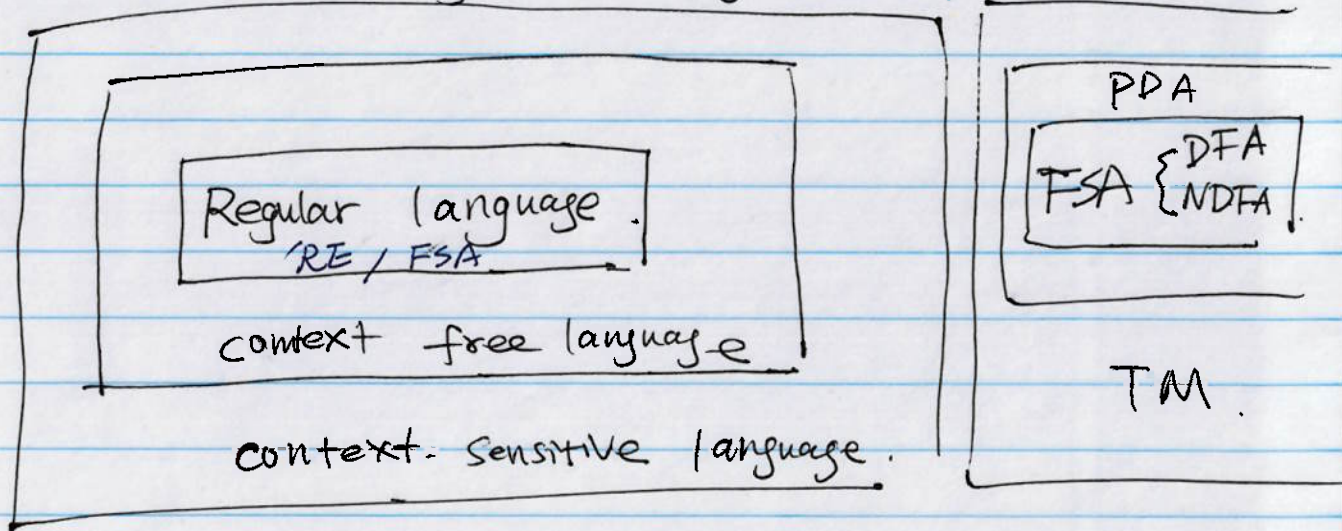 Regular language.
RE / FSA
context free language
context-sensitive language.
PDA
FSA { DFA
NDFA
TM.